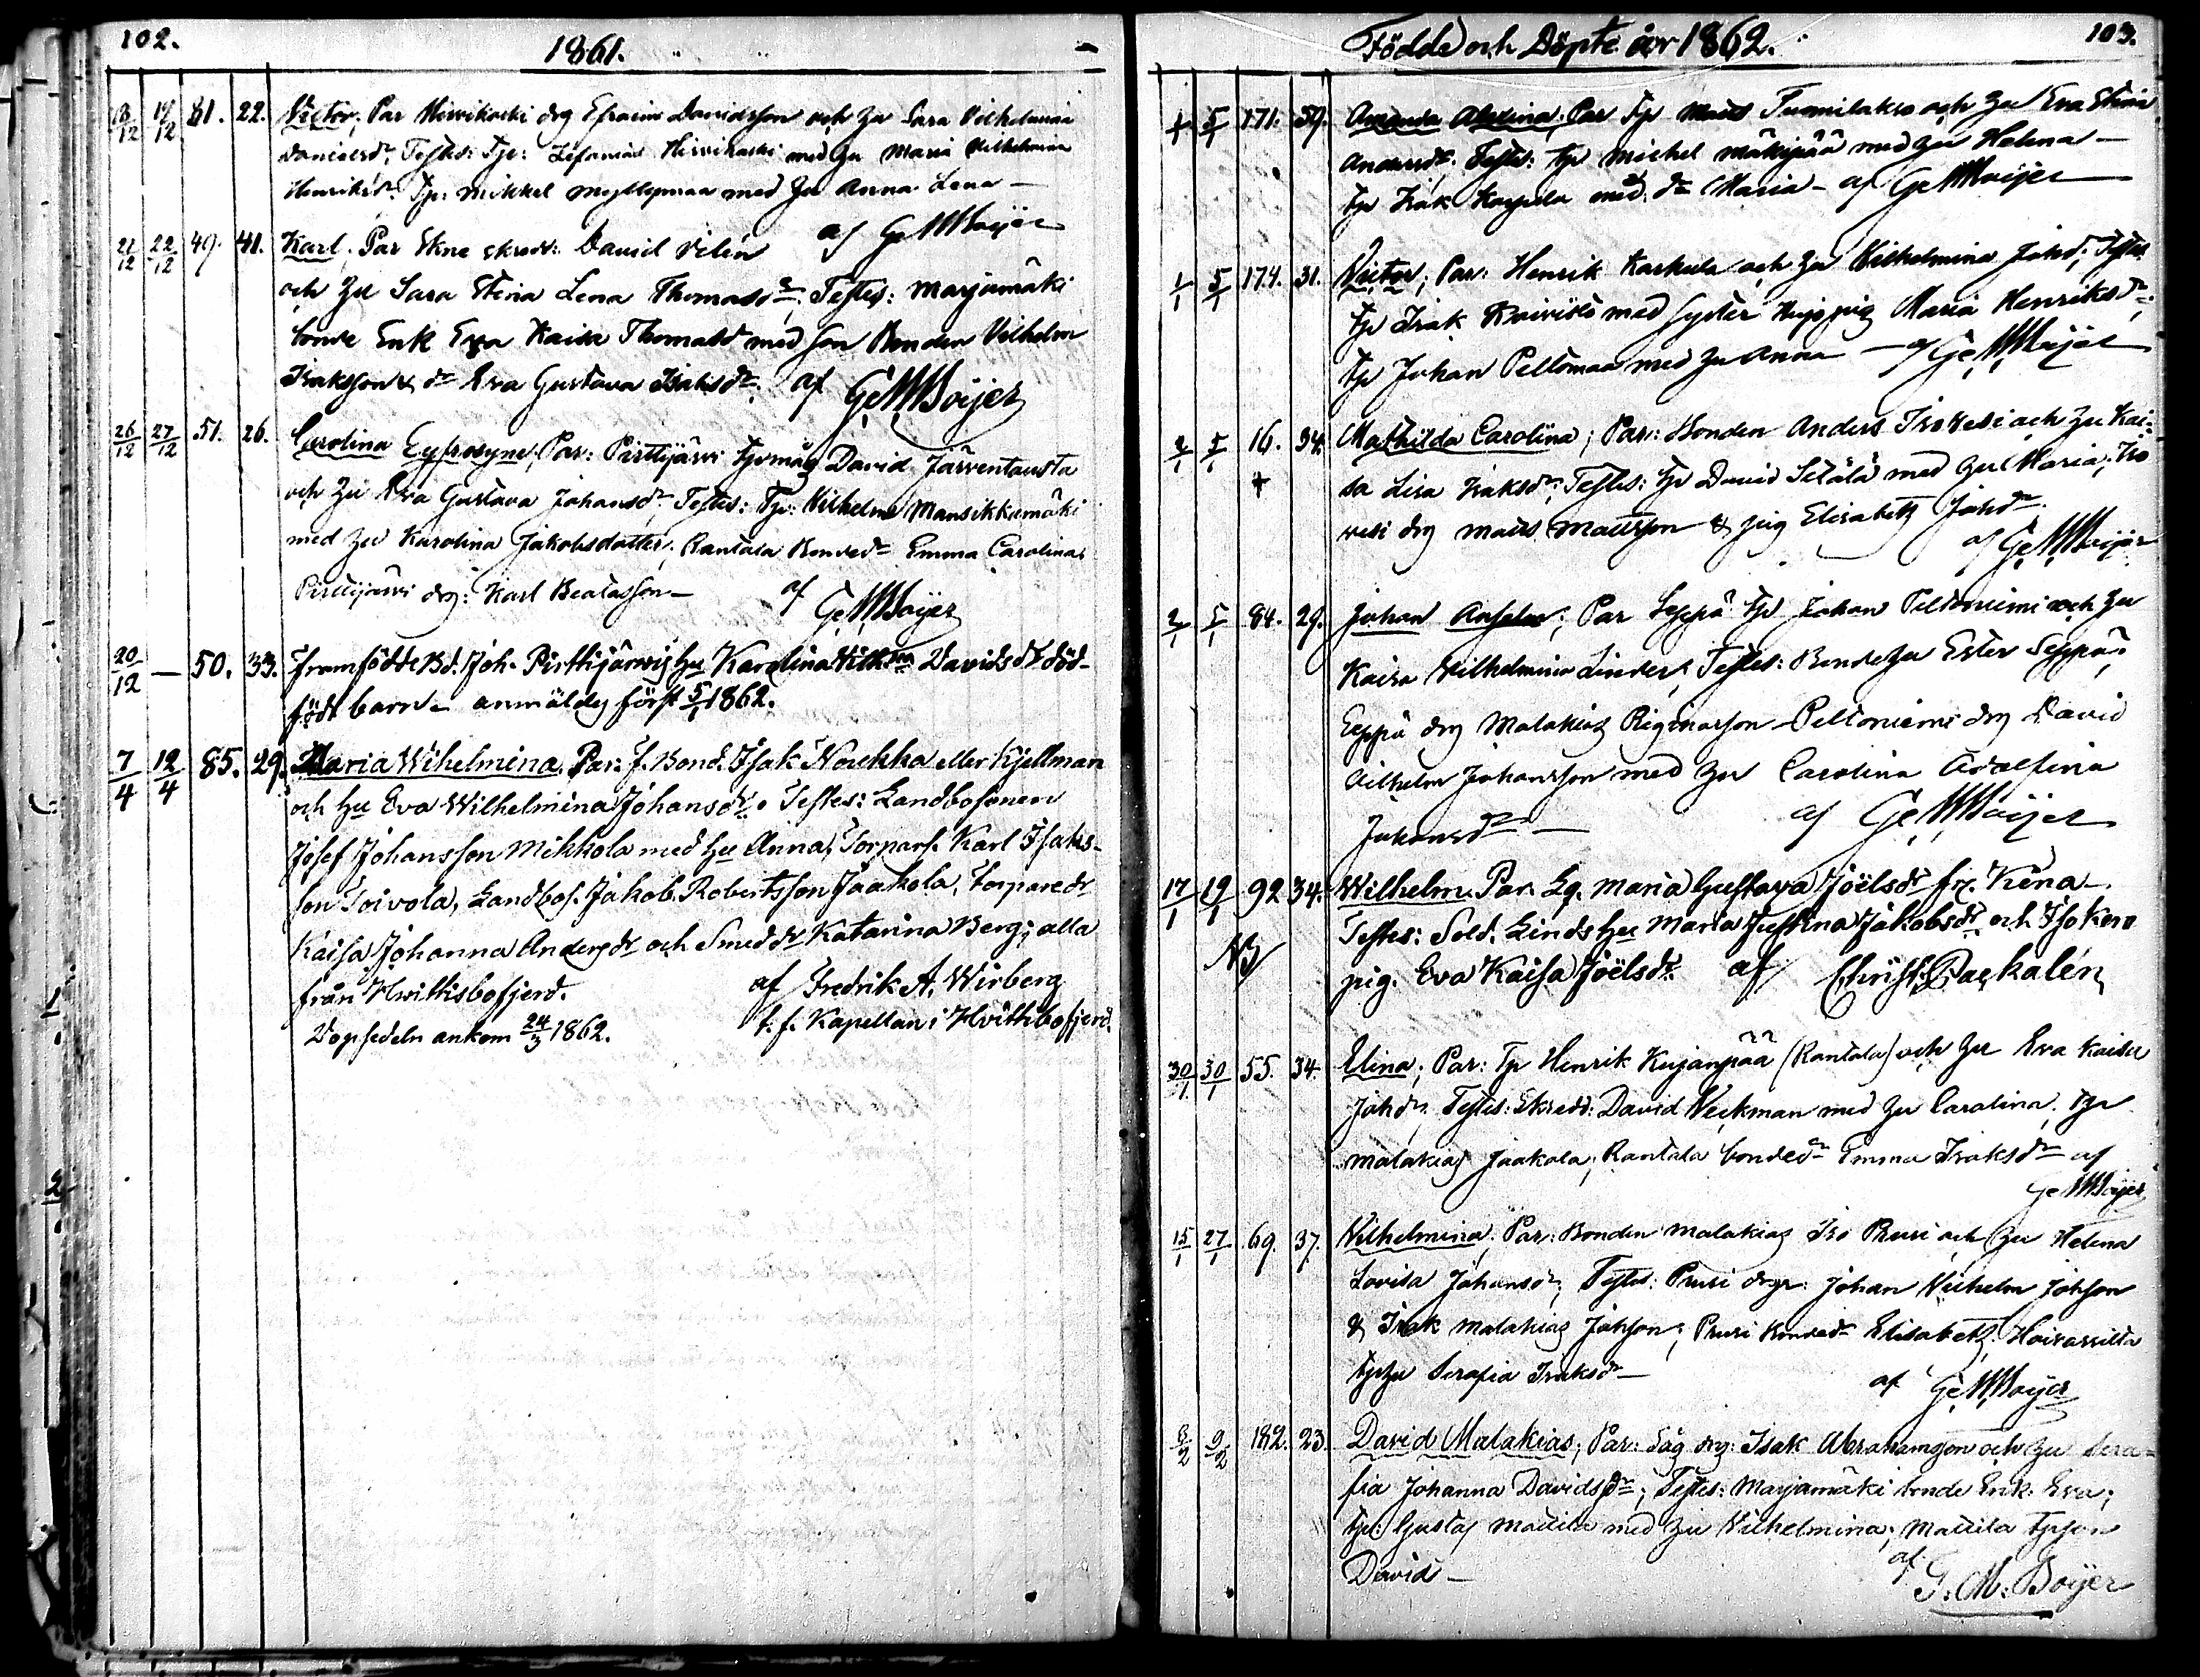 102.
1861.
18/12 19/12 81. 22. Victor; Par Hirvikoski drg Efraim Davidsson och hu Sara Vilhelmina
Danielsdr, Testes: Tp: Zefanias Hirvikoski med hu Maria Vilhelmina
Henriksdr Tp: Mikkel Myllymaa med hu Anna Lena —
af G M Boijer
21/12 22/12 49. 41. Karl; Par Skne skredd: David Vilén
och hu Sara Stina Lena Thomasdr; Testes: Marjamäki
bonde Enk Eva Kaisa Thomasd med son Bonden Vilhelm
Isaksson & dr Eva Gustava Isaksdr; af G M Boijer
26/12 27/12 51. 26. Carolina Eufrosyne; Par: Pirttijärvi tpmåg David Järventausta
och hu Eva Gustava Johansdr Testes: Tp: Vilhelm Mansikkamäki
med hu Karolina Jakobsdotter; Rantala Bondedr Emma Carolina;
Pirttijärvi drg: Karl Beatasson —
af G M Boijer
20/12 — 50. 33. framfödde Bd. Joh. Pirttijärvis hu Karolina Vilhma Davidsdr död-
födt barn — anmäldes först 5/1 1862.
7/4 12/4 85. 29. Maria Wihelmina. Par: f. Bond. Isak Noukka eller Kjellman
och hu Eva Wilhelmina Johansdr. Testes: Landbosonen
Josef Johansson Mikkola med hu Anna, Torpars. Karl Isaks-
son Toivola, Landbos. Jakob Robertsson Jaakola, torparedr
Kaisa Johanna Andersdr och Smeddr Katarina Berg; alla
från Hvittisbofjerd. af Fredrik A. Wirberg
Dopsedeln ankom 24/3 1862. t. f. Kapellan i Hvittisbofjerd.
Födde och Döpte år 1862.
103.
1/1 5/1 171. 39. Amanda; Par Tp Matts Tuomilakso och hu Eva Stina
Andersdr; Testes: tp Michel Mäkipää med hu Helena —
tp Isak Karhula med dr Maria — af G M Boijer
1/1 5/1 174. 31. Victor; Par: Henrik Karhula och hu Vilhelmina Johsd; Testes
tp Isak Koivisto med syster Maria Henriksdr;
tp Johan Peltomaa med hu Anna — af G M Boijer
2/1 5/1 16. 34. Mathilda Carolina; Par: Bonden Anders Isokesi och hu Kai-
sa Lisa Isaksdr; Testes: tp David Setälä med hu Maria; Iso
kesi drg Matts Mattsson & pig Elisabeth Johsdr
af G M Boijer
2/1 5/1 84. 29. Johan Anselm; Par Seppä tp Johan Peltoniemi och hu
Kaisa Vilhelmina Linder; Testes: Bonde hu Ester Seppä;
Seppä drg Malakias Peltoniemi drg David
Vilhelm Johansson med hu Carolina Adolfina
Johansdr —
af G M Boijer
17/1 19/1 92 34. Wilhelm. Par. Lq. Maria Gustava Joëlsdr frp. Kina —
NB Testes: Sold. Linds hu Maria Justina Jakobsdr och Isokero
pig. Eva Kaisa Joëlsdr. af Christ. Paekalén
30/1 30/1 55. 34. Elina; Par: Tp Henrik Kujanpää (Rantala) och hu Eva Kaisa
Johdr, Testes: Skredd: David Veckman med hu Carolina; tp
Malakias Jaakola; Rantala bondedr Emma Isaksdr af
G M Boijer
15/1 27/1 69. 37. Vilhelmina; Par: Bonden Malakias Iso Pruri och hu Helena
Lovisa Johansdr; Testes: Pruri drgr: Johan Vilhelm Johsson
& Isak Malakias Johsson; Pruri Bondedr Elisabeth; Hoivassilta
tp hu Serafia Isaksdr —
af G M Boijer
8/2 9/2 182. 23. David Malakias; Par: Såg drg: Isak Abrahamsson och hu Sera-
fia Johanna Davidsdr; Testes: Marjamäki bonde Enk. Eva;
tp: Gustaf Mattila med hu Vilhelmina; Mattila tpson
David —
af G. M. Boijer